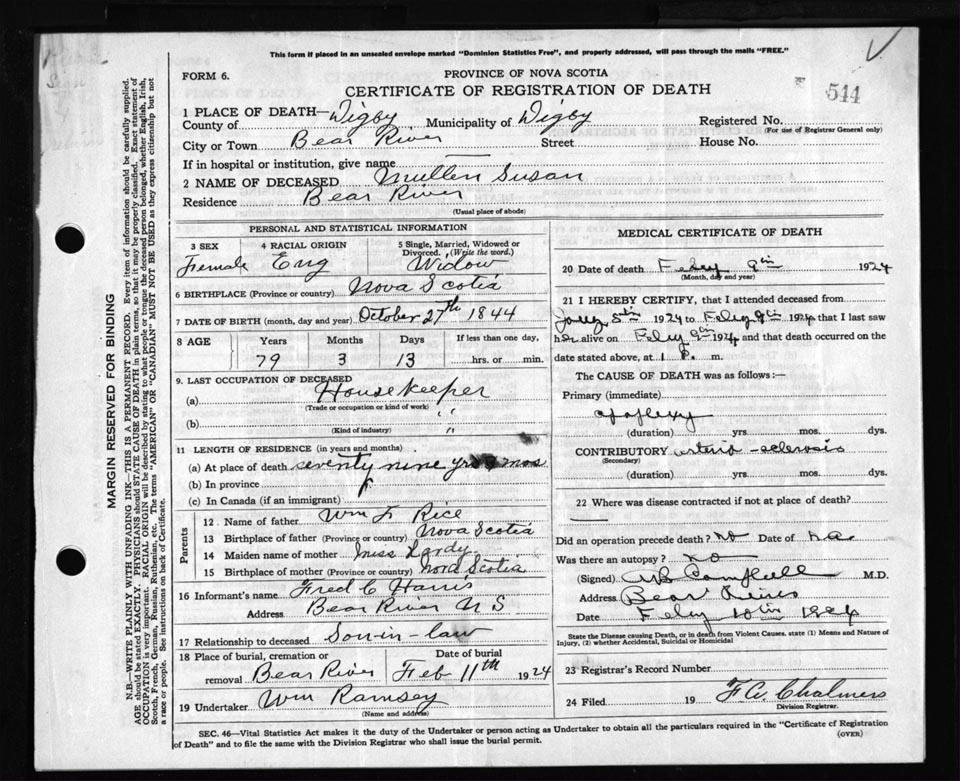 This form if placed in an unsealed envelope marked "Dominion Statistics Free", and properly addressed, will pass through the mails "FREE."
FORM 6.
PROVINCE OF NOVA SCOTIA
CERTIFICATE OF REGISTRATION OF DEATH
544
1 PLACE OF DEATH— Digby
County of Municipality of Digby Registered No.
(For use of Registrar General only)
City or Town Bear River Street House No.
If in hospital or institution, give name —
2 NAME OF DECEASED Mullen Susan
Residence Bear River
(Usual place of abode)
PERSONAL AND STATISTICAL INFORMATION
3 SEX Female
4 RACIAL ORIGIN Eng
5 Single, Married, Widowed or Divorced. (Write the word.) Widow
6 BIRTHPLACE (Province or country) Nova Scotia
7 DATE OF BIRTH (month, day and year) October 27th 1844
8 AGE Years Months Days If less than one day,
79 3 13 hrs. or min.
9. LAST OCCUPATION OF DECEASED
(a) Housekeeper
(Trade or occupation or kind of work)
(b) " "
(Kind of industry)
11 LENGTH OF RESIDENCE (in years and months)
(a) At place of death seventy nine yrs mos
(b) In province
(c) In Canada (if an immigrant)
Parents
12 Name of father Wm F Rice
13 Birthplace of father (Province or country) Nova Scotia
14 Maiden name of mother Miss Hardy
15 Birthplace of mother (Province or country) Nova Scotia
16 Informant's name Fred C Harris
Address Bear River N S
17 Relationship to deceased Son-in-law
18 Place of burial, cremation or removal Bear River Date of burial Feb 11th 1924
19 Undertaker Wm Ramsey
(Name and address)
MEDICAL CERTIFICATE OF DEATH
20 Date of death Feby 9th 1924
(Month, day and year)
21 I HEREBY CERTIFY, that I attended deceased from
Jany 8th 1924 to Feby 9th 1924 that I last saw
her alive on Feby 9th 1924 and that death occurred on the
date stated above, at 1 P. m.
The CAUSE OF DEATH was as follows:—
Primary (immediate)
apoplexy
(duration) yrs. mos. dys.
CONTRIBUTORY arterio-sclerosis
(Secondary)
(duration) yrs. mos. dys.
22 Where was disease contracted if not at place of death?
—
Did an operation precede death? No Date of
Was there an autopsy? no
(Signed) Campbell M.D.
Address Bear River
Date Feby 10th 1924
State the Disease causing Death, or in death from Violent Causes, state (1) Means and Nature of
Injury, (2) whether Accidental, Suicidal or Homicidal
23 Registrar's Record Number
24 Filed 19 Chalmers
Division Registrar.
SEC. 46—Vital Statistics Act makes it the duty of the Undertaker or person acting as Undertaker to obtain all the particulars required in the "Certificate of Registration
of Death" and to file the same with the Division Registrar who shall issue the burial permit.
(OVER)
MARGIN RESERVED FOR BINDING
N.B.—WRITE PLAINLY WITH UNFADING INK—THIS IS A PERMANENT RECORD. Every item of information should be carefully supplied.
AGE should be stated EXACTLY. PHYSICIANS should STATE CAUSE OF DEATH in plain terms, so that it may be properly classified. Exact statement of
OCCUPATION is very important. RACIAL ORIGIN will be described by stating to what people or tongue the deceased person belonged, whether English, Irish,
Scotch, French, German, Russian, Ruthenian, etc. The terms "AMERICAN" OR "CANADIAN" MUST NOT BE USED as they express citizenship but not
a race or people. See instructions on back of Certificate.